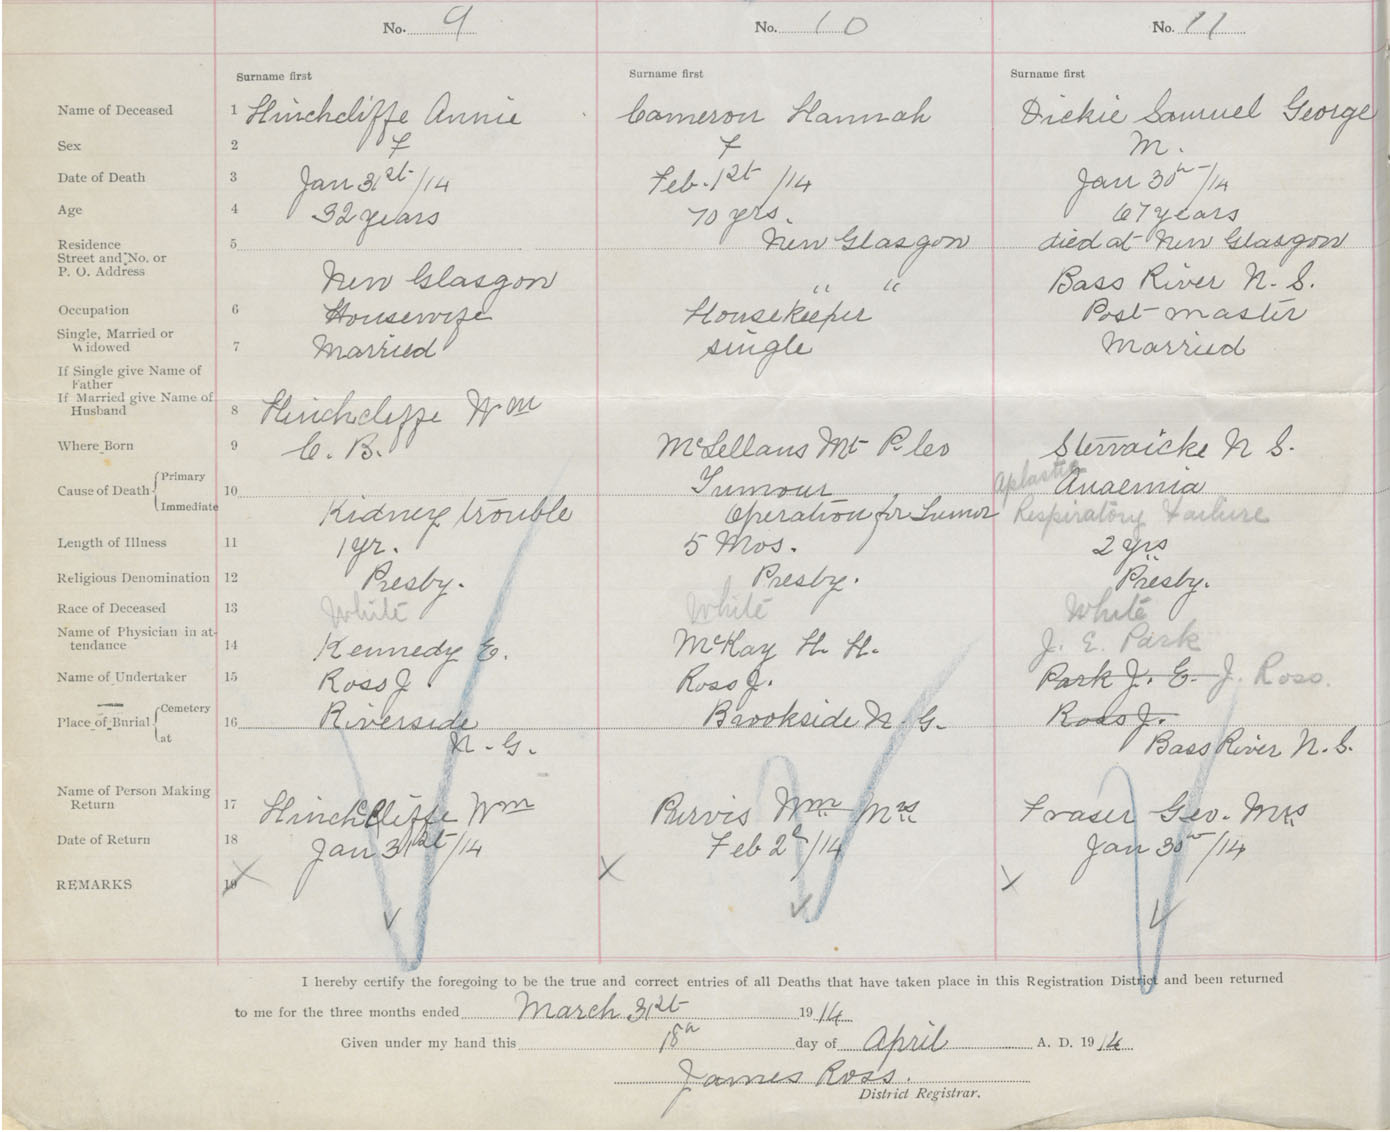 No. 9 No. 10 No. 11
Surname first Surname first Surname first
Name of Deceased 1 Hinchcliffe Annie Cameron Hannah Dickie Samuel George
Sex 2 F F M.
Date of Death 3 Jan 31st/14 Feb. 1st /14 Jan 30th/14
Age 4 32 years 70 yrs. 67 years
Residence 5 New Glasgow died at New Glasgow
Street and No. or
P. O. Address New Glasgow " " Bass River N. S.
Occupation 6 Housewife Housekeeper Post-master
Single, Married or
Widowed 7 Married single Married
If Single give Name of
Father
If Married give Name of
Husband 8 Hinchcliffe Wm
Where Born 9 C. B. McLellans Mt P. Co Sterraicke N S.
Cause of Death Primary 10 Tumour Aplastic Anaemia
Immediate Kidney trouble Operation for Tumor Respiratory Failure
Length of Illness 11 1 yr. 5 Mos. 2 yrs
Religious Denomination 12 Presby. Presby. Presby.
Race of Deceased 13 White White White
Name of Physician in at-
tendance 14 Kennedy E. McKay H. H. J. E. Park
Name of Undertaker 15 Ross J. Ross J. Park J. E. J. Ross.
Place of Burial Cemetery 16 Riverside Brookside N. G. Ross J.
at N. G. Bass River N. S.
Name of Person Making
Return 17 Hinchcliffe Wm Purvis Wm Mrs Fraser Geo. Mrs
Date of Return 18 Jan 31st/14 Feb 2d/14 Jan 30th/14
REMARKS 19
I hereby certify the foregoing to be the true and correct entries of all Deaths that have taken place in this Registration District and been returned
to me for the three months ended March 31st 1914
Given under my hand this 18th day of April A. D. 1914
James Ross.
District Registrar.